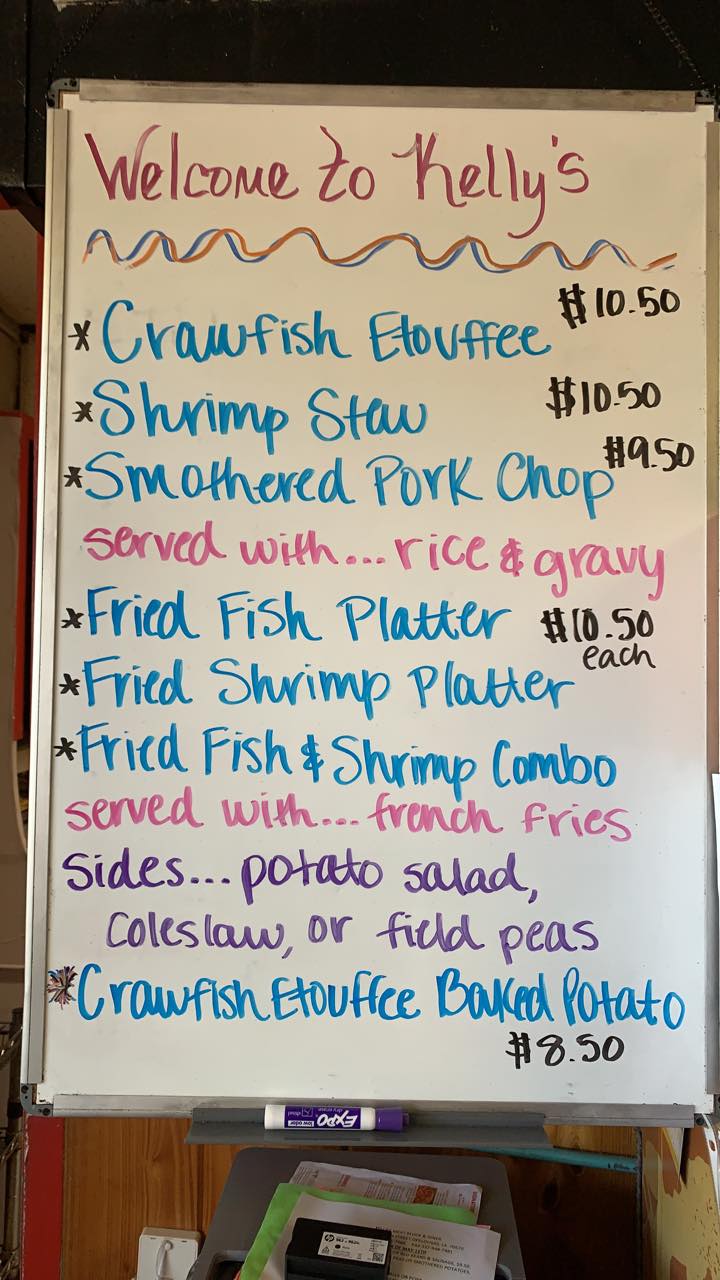 Welcome to Kelly's
* Crawfish Etouffee $10.50
* Shrimp Stew $10.50
* Smothered Pork Chop $9.50
served with... rice & gravy
* Fried Fish Platter $10.50
each
* Fried Shrimp Platter
* Fried Fish & Shrimp Combo
served with... french fries
Sides... potato salad,
Coleslaw, or field peas
* Crawfish Etouffee Baked Potato
$8.50
EXPO
low odor
dry erase
hp